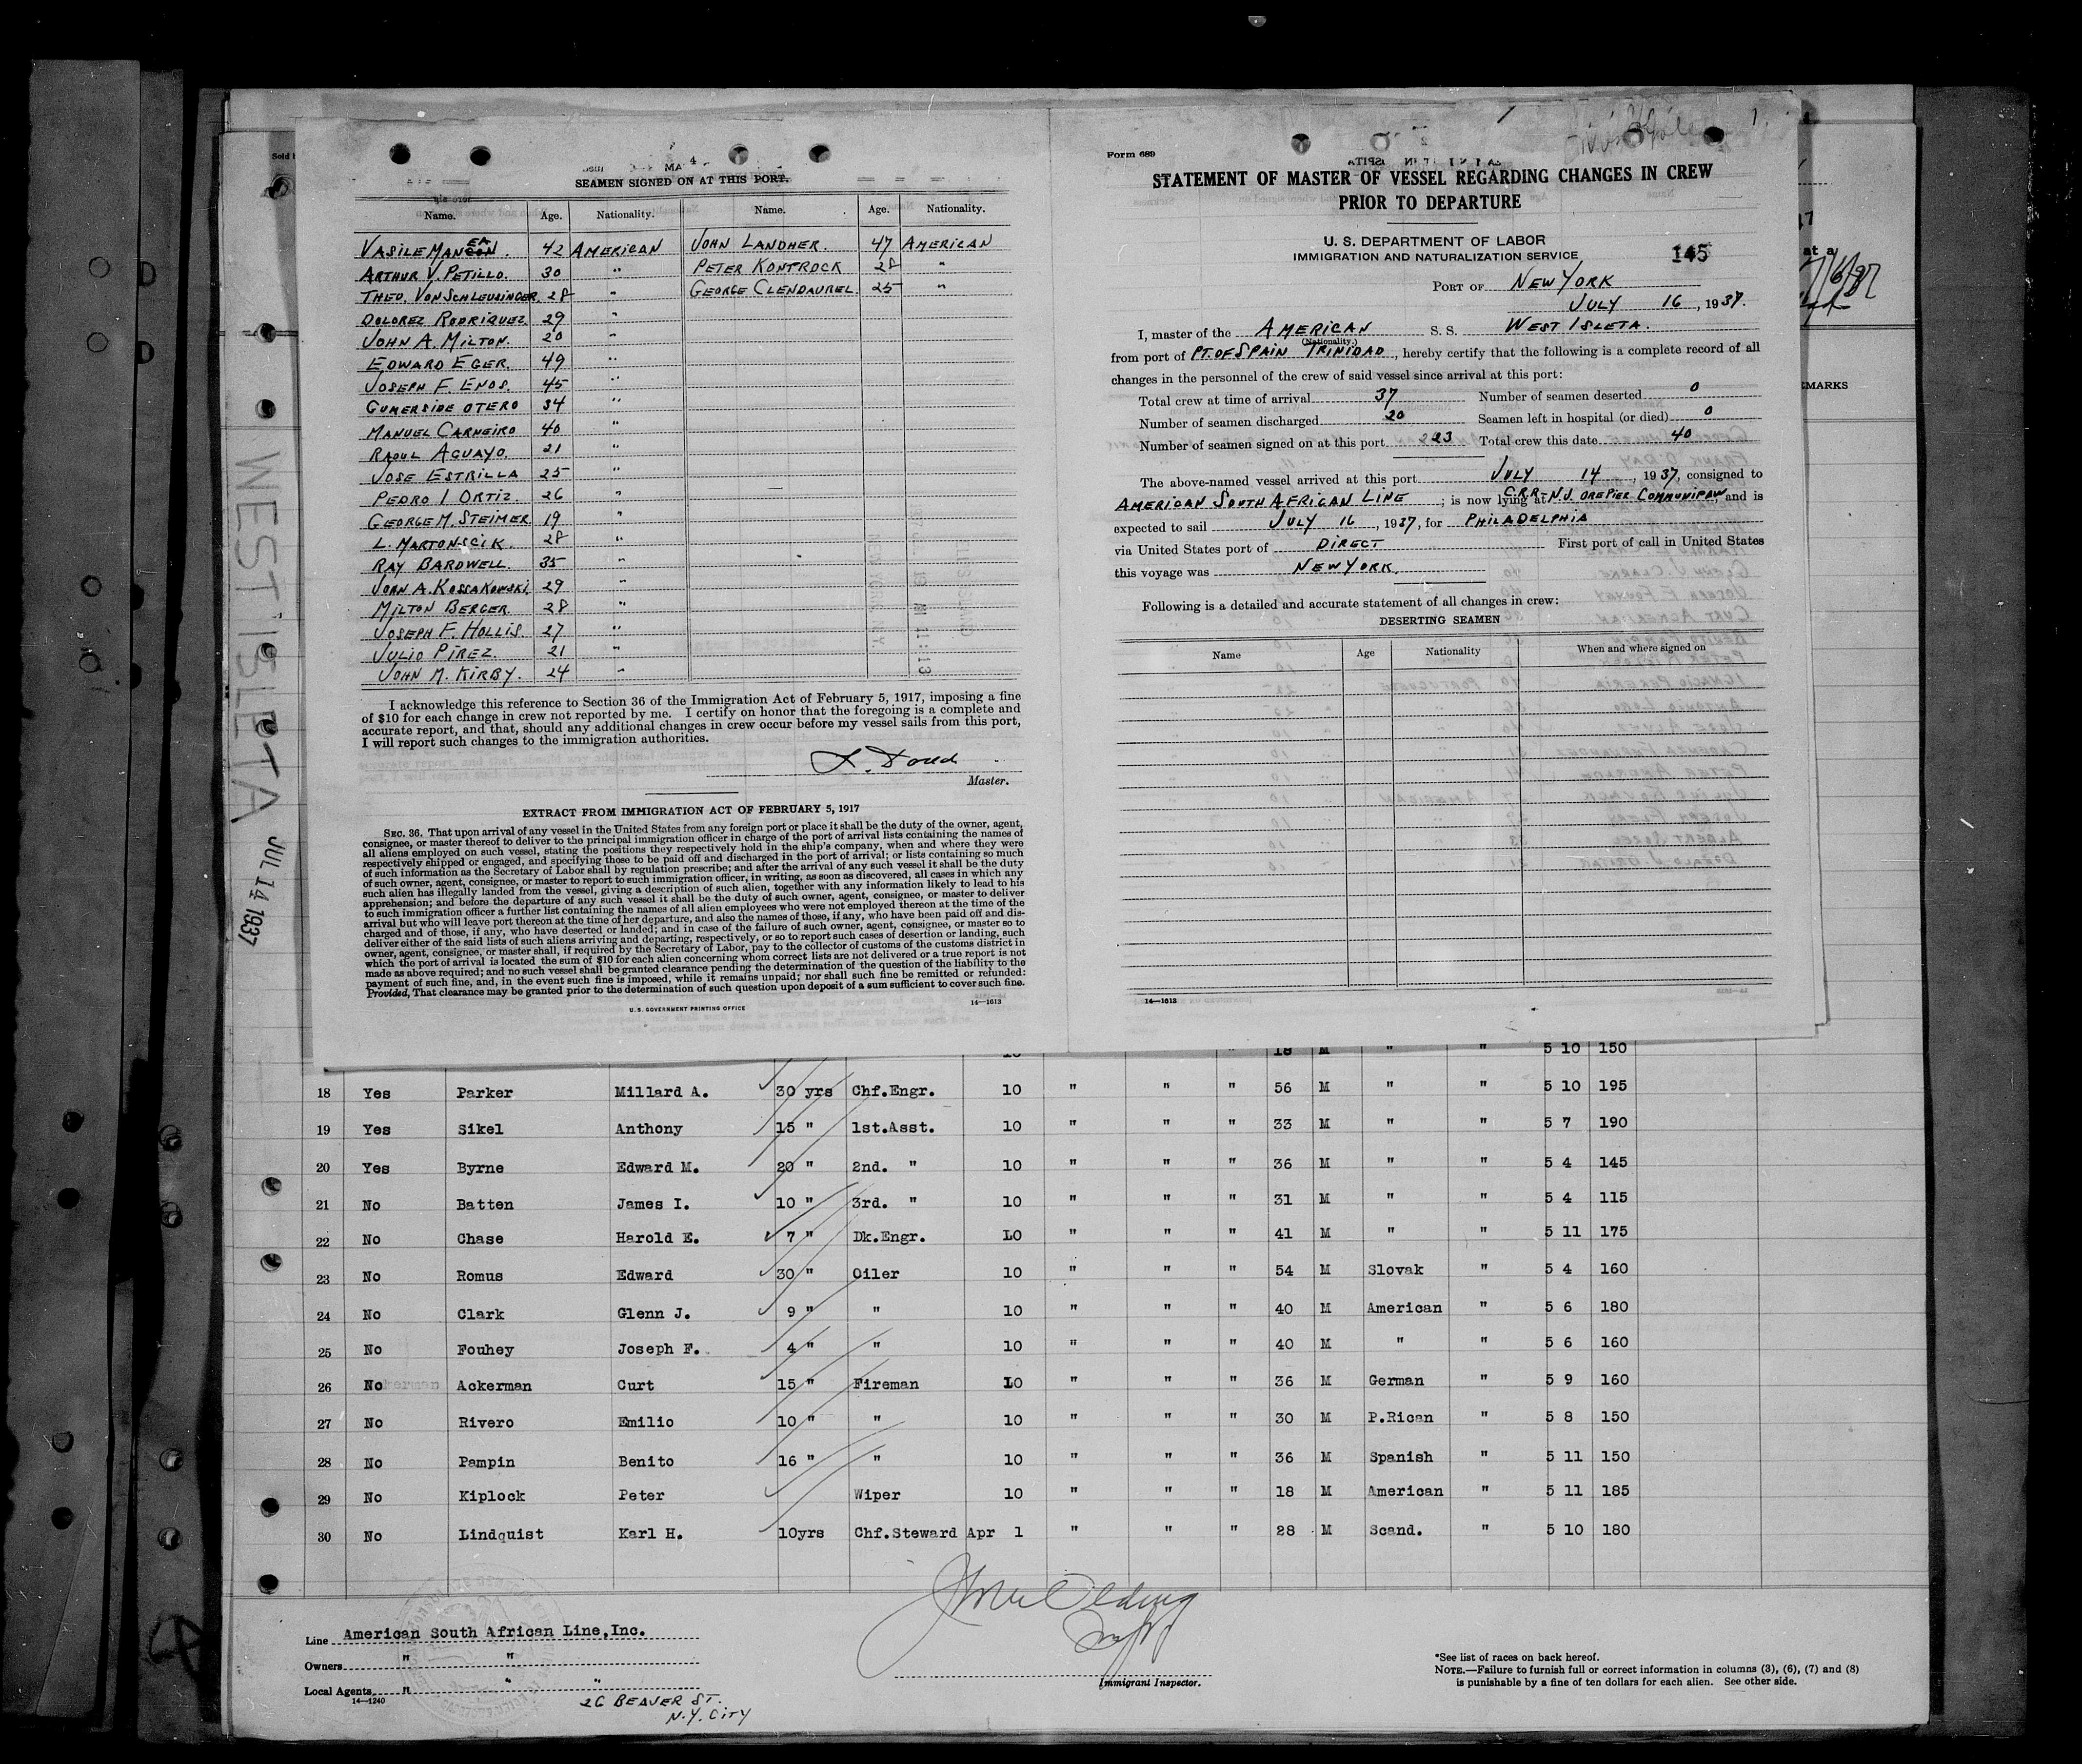 SEAMEN SIGNED ON AT THIS PORT.
Name. Age. Nationality. Name. Age. Nationality.
VASILE MANEA. 42 AMERICAN JOHN LANDHER. 47 AMERICAN
ARTHUR V. PETILLO. 30 " PETER KONTROCK 28 "
THEO. VON SCHLEUSINGER 28 " GEORGE CLENDAUREL. 25 "
DOLOREZ RODRIQUEZ. 29 "
JOHN A. MILTON. 20 "
EDWARD EGER. 49 "
JOSEPH F. ENOS. 45 "
GUMERSIDE OTERO 34 "
MANUEL CARNEIRO 40 "
RAOUL AGUAYO. 21 "
JOSE ESTRILLA 25 "
PEDRO I ORTIZ. 26 "
GEORGE M. STEIMER 19 "
L. MARTONSCIK. 28 "
RAY BARDWELL. 35 "
JOHN A. KOSSAKOWSKI. 29 "
MILTON BERGER. 28 "
JOSEPH F. HOLLIS. 27 "
JULIO PIREZ. 21 "
JOHN M. KIRBY. 24 "
I acknowledge this reference to Section 36 of the Immigration Act of February 5, 1917, imposing a fine
of $10 for each change in crew not reported by me. I certify on honor that the foregoing is a complete and
accurate report, and that, should any additional changes in crew occur before my vessel sails from this port,
I will report such changes to the immigration authorities.
Master.
EXTRACT FROM IMMIGRATION ACT OF FEBRUARY 5, 1917
SEC. 36. That upon arrival of any vessel in the United States from any foreign port or place it shall be the duty of the owner, agent,
consignee, or master thereof to deliver to the principal immigration officer in charge of the port of arrival lists containing the names of
all aliens employed on such vessel, stating the positions they respectively hold in the ship's company, when and where they were
respectively shipped or engaged, and specifying those to be paid off and discharged in the port of arrival; or lists containing so much
of such information as the Secretary of Labor shall by regulation prescribe; and after the arrival of any such vessel it shall be the duty
of such owner, agent, consignee, or master to report to such immigration officer, in writing, as soon as discovered, all cases in which any
such alien has illegally landed from the vessel, giving a description of such alien, together with any information likely to lead to his
apprehension; and before the departure of any such vessel it shall be the duty of such owner, agent, consignee, or master to deliver
to such immigration officer a further list containing the names of all alien employees who were not employed thereon at the time of the
arrival but who will leave port thereon at the time of her departure, and also the names of those, if any, who have been paid off and dis-
charged and of those, if any, who have deserted or landed; and in case of the failure of such owner, agent, consignee, or master so to
deliver either of the said lists of such aliens arriving and departing, respectively, or so to report such cases of desertion or landing, such
owner, agent, consignee, or master shall, if required by the Secretary of Labor, pay to the collector of customs of the customs district in
which the port of arrival is located the sum of $10 for each alien concerning whom correct lists are not delivered or a true report is not
made as above required; and no such vessel shall be granted clearance pending the determination of the question of the liability to the
payment of such fine, and, in the event such fine is imposed, while it remains unpaid; nor shall such fine be remitted or refunded:
Provided, That clearance may be granted prior to the determination of such question upon deposit of a sum sufficient to cover such fine.
U. S. GOVERNMENT PRINTING OFFICE 14—1613
WEST ISLETA JUL 14 1937
Form 689
STATEMENT OF MASTER OF VESSEL REGARDING CHANGES IN CREW
PRIOR TO DEPARTURE
U. S. DEPARTMENT OF LABOR
IMMIGRATION AND NATURALIZATION SERVICE
145
PORT OF NEW YORK
JULY 16, 1937.
I, master of the AMERICAN S. S. WEST ISLETA.
(Nationality.)
from port of PT. OF SPAIN TRINIDAD, hereby certify that the following is a complete record of all
changes in the personnel of the crew of said vessel since arrival at this port:
Total crew at time of arrival 37 Number of seamen deserted 0
Number of seamen discharged 20 Seamen left in hospital (or died) 0
Number of seamen signed on at this port 23 Total crew this date 40
The above-named vessel arrived at this port JULY 14, 1937, consigned to
AMERICAN SOUTH AFRICAN LINE; is now lying at C.R.R.-N.J. OREPIER COMMUNIPAW, and is
expected to sail JULY 16, 1937, for PHILADELPHIA
via United States port of DIRECT First port of call in United States
this voyage was NEW YORK.
Following is a detailed and accurate statement of all changes in crew:
DESERTING SEAMEN
Name Age Nationality When and where signed on
14—1613
at a
EMARKS
18 M " " 5 10 150
18 Yes Parker Millard A. 30 yrs Chf.Engr. 10 " " " 56 M " " 5 10 195
19 Yes Sikel Anthony 15 " 1st.Asst. 10 " " " 33 M " " 5 7 190
20 Yes Byrne Edward M. 20 " 2nd. " 10 " " " 36 M " " 5 4 145
21 No Batten James I. 10 " 3rd. " 10 " " " 31 M " " 5 4 115
22 No Chase Harold E. 7 " Dk.Engr. 10 " " " 41 M " " 5 11 175
23 No Romus Edward 30 " Oiler 10 " " " 54 M Slovak " 5 4 160
24 No Clark Glenn J. 9 " " 10 " " " 40 M American " 5 6 180
25 No Fouhey Joseph F. 4 " " 10 " " " 40 M " " 5 6 160
26 No Ackerman Curt 15 " Fireman 10 " " " 36 M German " 5 9 160
27 No Rivero Emilio 10 " " 10 " " " 30 M P.Rican " 5 8 150
28 No Pampin Benito 16 " " 10 " " " 36 M Spanish " 5 11 150
29 No Kiplock Peter Wiper 10 " " " 18 M American " 5 11 185
30 No Lindquist Karl H. 10yrs Chf.Steward Apr 1 " " " 28 M Scand. " 5 10 180
Line American South African Line,Inc.
Owners " "
Local Agents " " "
14—1240
26 BEAVER ST.
N.Y. CITY
Immigrant Inspector.
*See list of races on back hereof.
NOTE.—Failure to furnish full or correct information in columns (3), (6), (7) and (8)
is punishable by a fine of ten dollars for each alien. See other side.